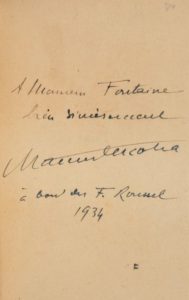 A Monsieur Fontaine
bien sincèrement
à bord du F. Roussel
1934